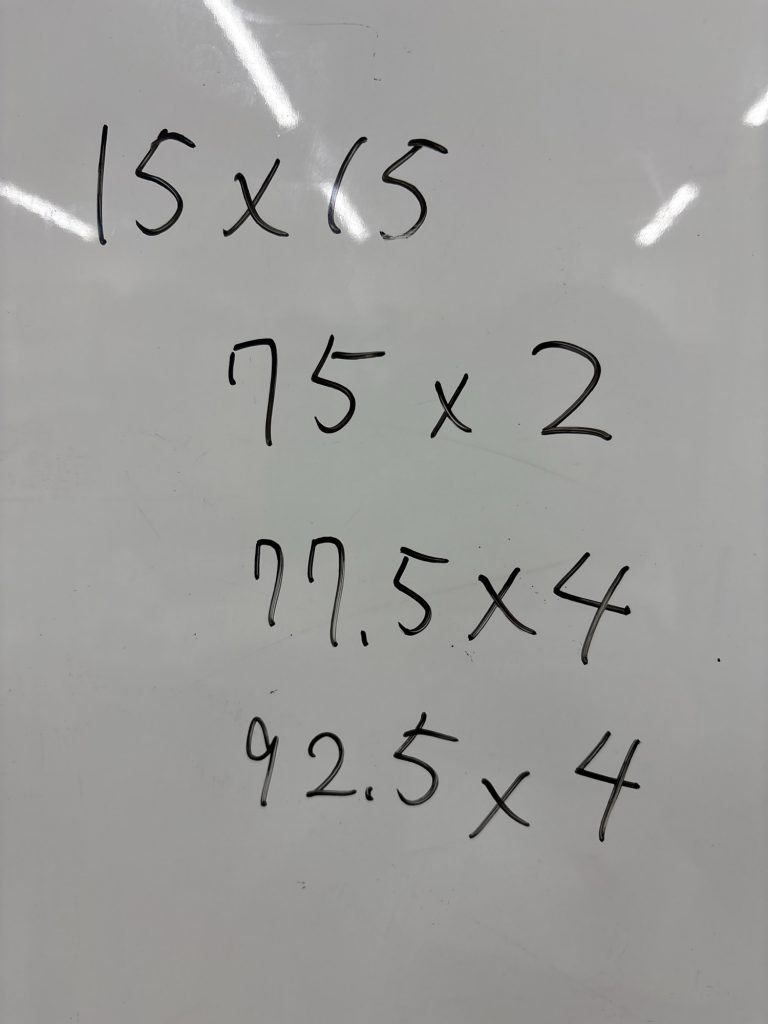 15 x 15
75 x 2
77.5 x 4
92.5 x 4